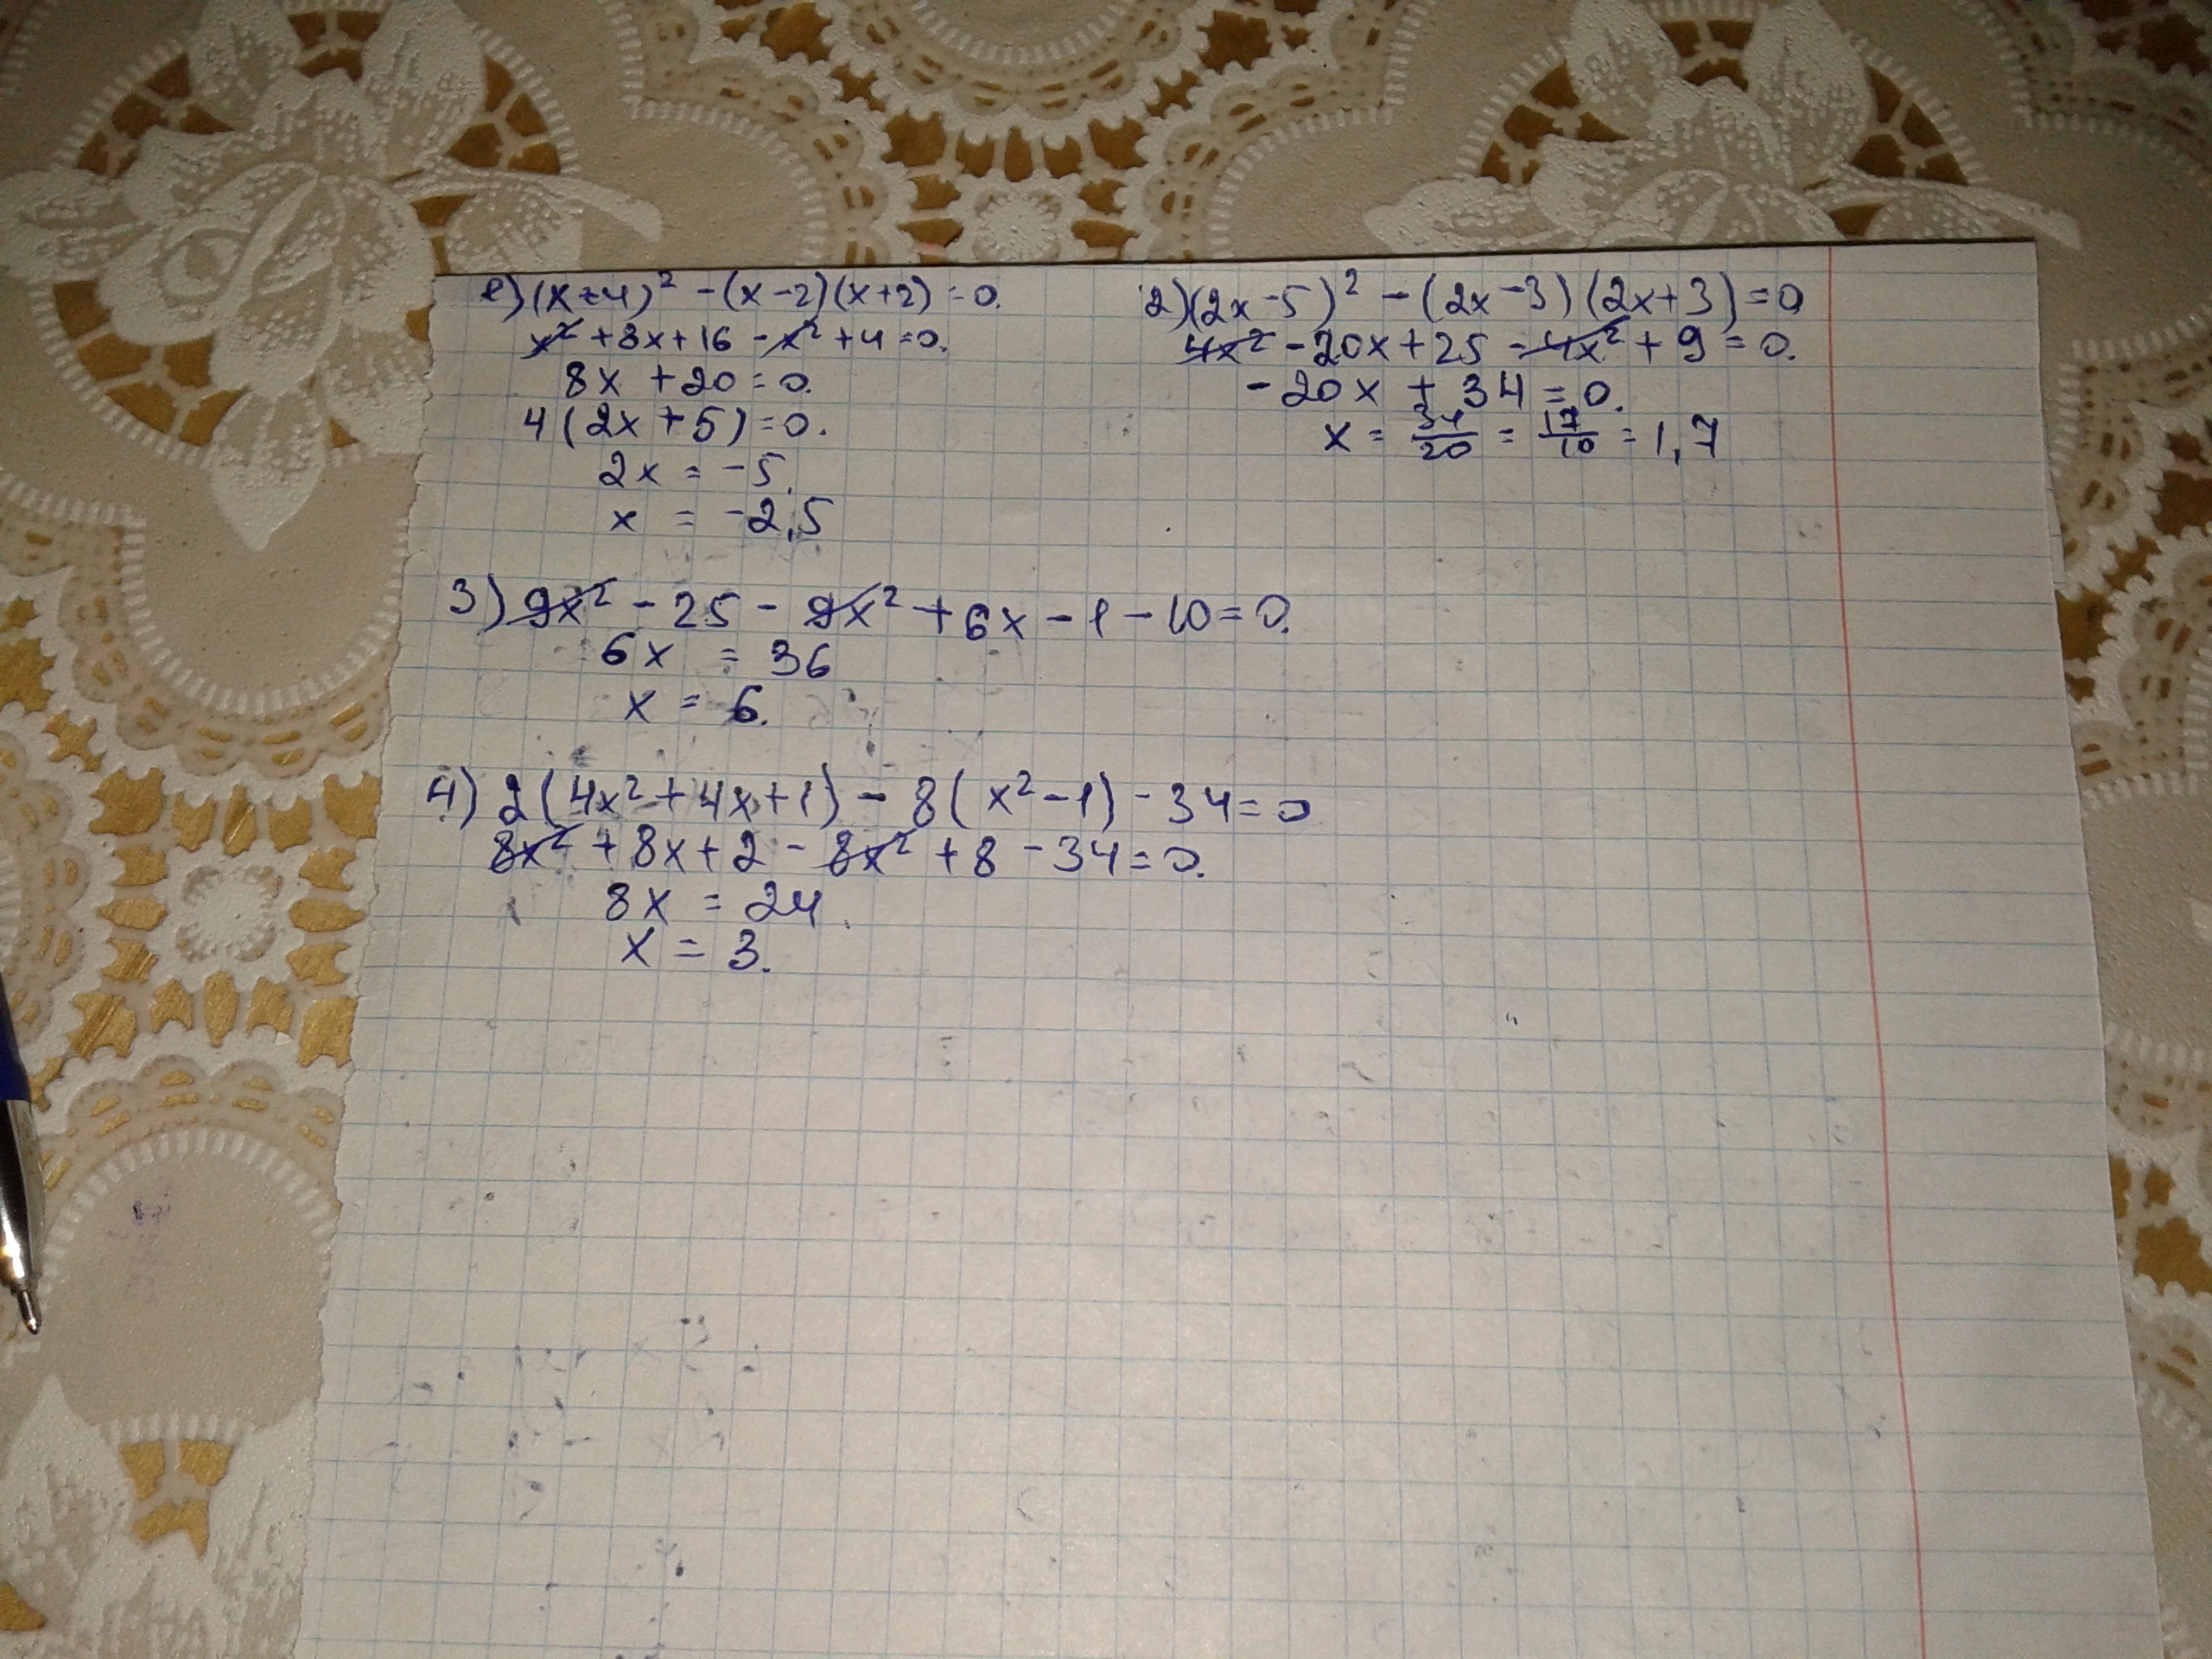 1) (x+4)² - (x-2)(x+2) = 0.
x² + 8x + 16 - x² + 4 = 0.
8x + 20 = 0.
4(2x+5) = 0.
2x = -5.
x = -2,5
2) (2x-5)² - (2x-3)(2x+3) = 0
4x² - 20x + 25 - 4x² + 9 = 0.
-20x + 34 = 0.
x = 34/20 = 17/10 = 1,7
3) 9x² - 25 - 9x² + 6x - 1 - 10 = 0.
6x = 36
x = 6.
4) 2(4x² + 4x + 1) - 8(x² - 1) - 34 = 0
8x² + 8x + 2 - 8x² + 8 - 34 = 0.
8x = 24
x = 3.